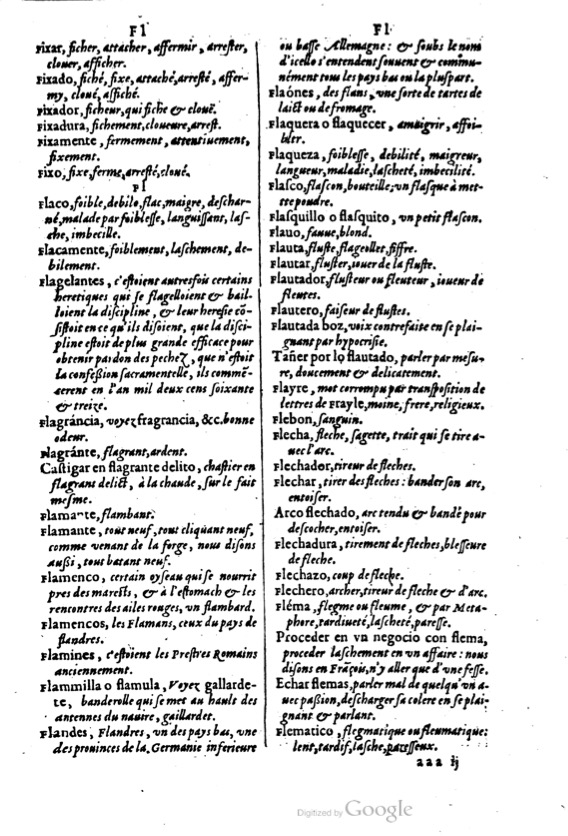 Fl
Fixar, ficher, attacher, affermir, arrester,
clouer, afficher.
Fixado, fiché, fixe, attaché, arresté, affer-
my, cloué, affiché.
Fixador, ficheur, qui fiche & cloue.
Fixadura, fichement, cloueure, arrest.
Fixamente, fermement, attentiuement,
fixement.
Fixo, fixe, ferme, arresté, cloué.
Fl
Flaco, foible, debile, flac, maigre, deschar-
né, malade par foiblesse, languissant, las-
che, imbecille.
Flacamente, foiblement, laschement, de-
bilement.
Flagelantes, c'estoient autresfois certains
heretiques qui se flagelloient & bail-
loient la discipline, & leur heresie cō-
sistoit en ce qu'ils disoient, que la disci-
pline estoit de plus grande efficace pour
obtenir pardon des pechez, que n'estoit
la confession sacramentelle, ils commē-
cerent en l'an mil deux cens soixante
& treize.
Flagráncia, voyez fragrancia, &c. bonne
odeur.
Flagránte, flagrant, ardent.
Castigar en flagrante delito, chastier en
flagrant delict, à la chaude, sur le fait
mesme.
Flamante, flambant.
Flamante, tout neuf, tout cliquant neuf,
comme venant de la forge, nous disons
aussi, tout batant neuf.
Flamenco, certain oyseau qui se nourrit
pres des marests, & à l'estomach & les
rencontres des ailes rouges, vn flambard.
Flamencos, les Flamans, ceux du pays de
flandres.
Flamines, c'estoient les Prestres Romains
anciennement.
Flammilla o flamula, Voyez gallarde-
te, banderolle qui se met au hault des
antennes du nauire, gaillardet.
Flandes, Flandres, vn des pays bas, vne
des prouinces de la Germanie inferieure
Fl
ou basse Allemagne: & soubs le nom
d'icelle s'entendent souuent & commu-
nément tous les pays bas ou la pluspart.
Flaónes, des flans, vne sorte de tartes de
laict ou de fromage.
Flaquera o flaquecer, amaigrir, affoi-
blir.
Flaqueza, foiblesse, debilité, maigreur,
langueur, maladie, lascheté, imbecilité.
Flasco, flascon, bouteille, vn flasque à met-
tre poudre.
Flasquillo o flasquito, vn petit flascon.
Flauo, fauue, blond.
Flauta, fluste, flageollet, fiffre.
Flautar, fluster, iouer de la fluste.
Flautador, flusteur ou fleuteur, ioueur de
fleutes.
Flautero, faiseur de flustes.
Flautada boz, voix contrefaite en se plai-
gnant par hypocrisie.
Tañer por lo flautado, parler par mesu-
re, doucement & delicatement.
Flayre, mot corrompu par transposition de
lettres de Frayle, moine, frere, religieux.
Flebon, sanguin.
Flecha, fleche, sagette, trait qui se tire a-
uec l'arc.
Flechador, tireur de fleches.
Flechar, tirer des fleches: bander son arc,
entoiser.
Arco flechado, arc tendu & bandé pour
descocher, entoiser.
Flechadura, tirement de fleches, blesseure
de fleche.
Flechazo, coup de fleche.
Flechero, archer, tireur de fleche & d'arc.
Fléma, flegme ou fleume, & par Meta-
phore, tardiueté, lascheté, paresse.
Proceder en vn negocio con flema,
proceder laschement en vn affaire: nous
disons en Frāçois, n'y aller que d'vne fesse.
Echar flemas, parler mal de quelqu'vn a-
uec passion, descharger sa colere en se plai-
gnant & parlant.
Flematico, flegmatique ou fleumatique:
lent, tardif, lasche, paresseux.
aaa ij
Digitized by Google